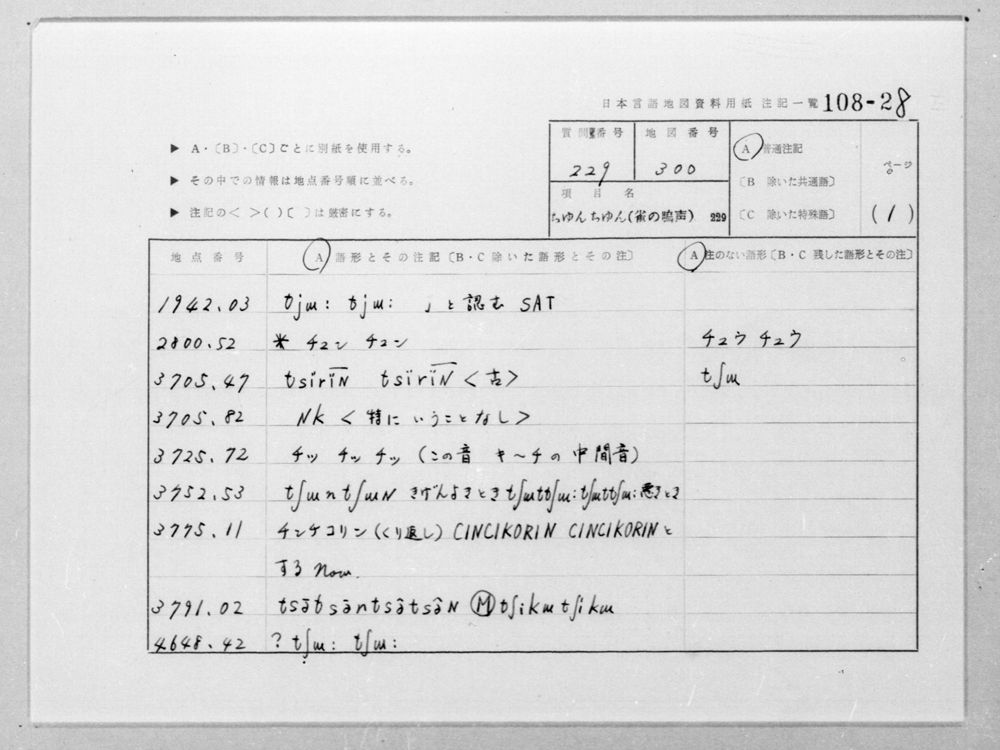 日本言語地図資料用紙 注記一覧 108-28
▶ A・〔B〕・〔C〕ごとに別紙を使用する。
▶ その中での情報は地点番号順に並べる。
▶ 注記の< >( )〔 〕は厳密にする。
質問番号 地図番号
229 300
項目名
ちゅんちゅん(雀の鳴声) 229
A 普通注記
〔B 除いた共通語〕
〔C 除いた特殊語〕
ページ
(1)
地点番号 A 語形とその注記〔B・C除いた語形とその注〕 A 注のない語形〔B・C 残した語形とその注〕
1942.03 tjɯ: tjɯ: 」と認む SAT
2800.52 * チュン チュン チュウ チュウ
3705.47 tsïrïN tsïrïN <古> tʃɯ
3705.82 NK <特にいうことなし>
3725.72 チッ チッ チッ (この音 キ〜チの中間音)
3752.53 tʃɯntʃɯN きげんよきとき tʃɯttʃɯ:tʃɯttʃɯ:悪きとき
3775.11 チンチコリン(くり返し) CINCIKORIN CINCIKORINと
する Now.
3791.02 tsə̄tsə̄ntsə̂tsə̂N Ⓜ tʃikɯ tʃikɯ
4648.42 ? tʃɯ: tʃɯ: